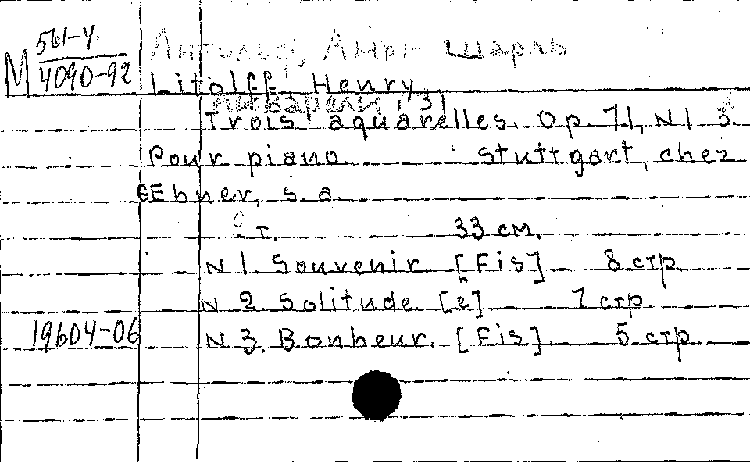 М 561-У
4090-92
Литольф, Анри Шарль
Litolff, Henry.
Акварели, 3
Trois aquarelles. Op. 71, N 1-3.
Pour piano. Stuttgart, chez
Ebner, s. a.
т. 33 см.
N 1. Souvenir. [Fis] 8 стр.
N 2. Solitude. [e] 7 стр.
19604-06 N 3. Bonheur. [Fis] 5 стр.